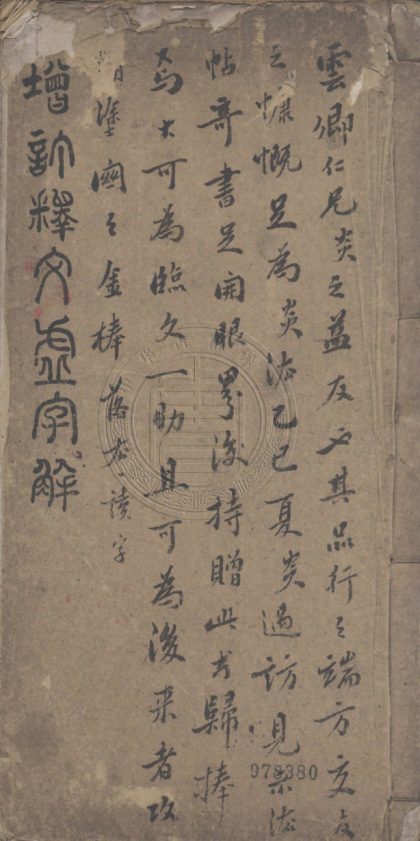 雲卿仁兄炎之益友也其品行之端方交友
之慷慨足為炎法乙巳夏炎過訪見示法
帖奇書足開眼界後持贈此書歸捧
為大可為臨文一助且可為後来者攻
塗 金棒 讀字
增訂釋文虛字解
978380